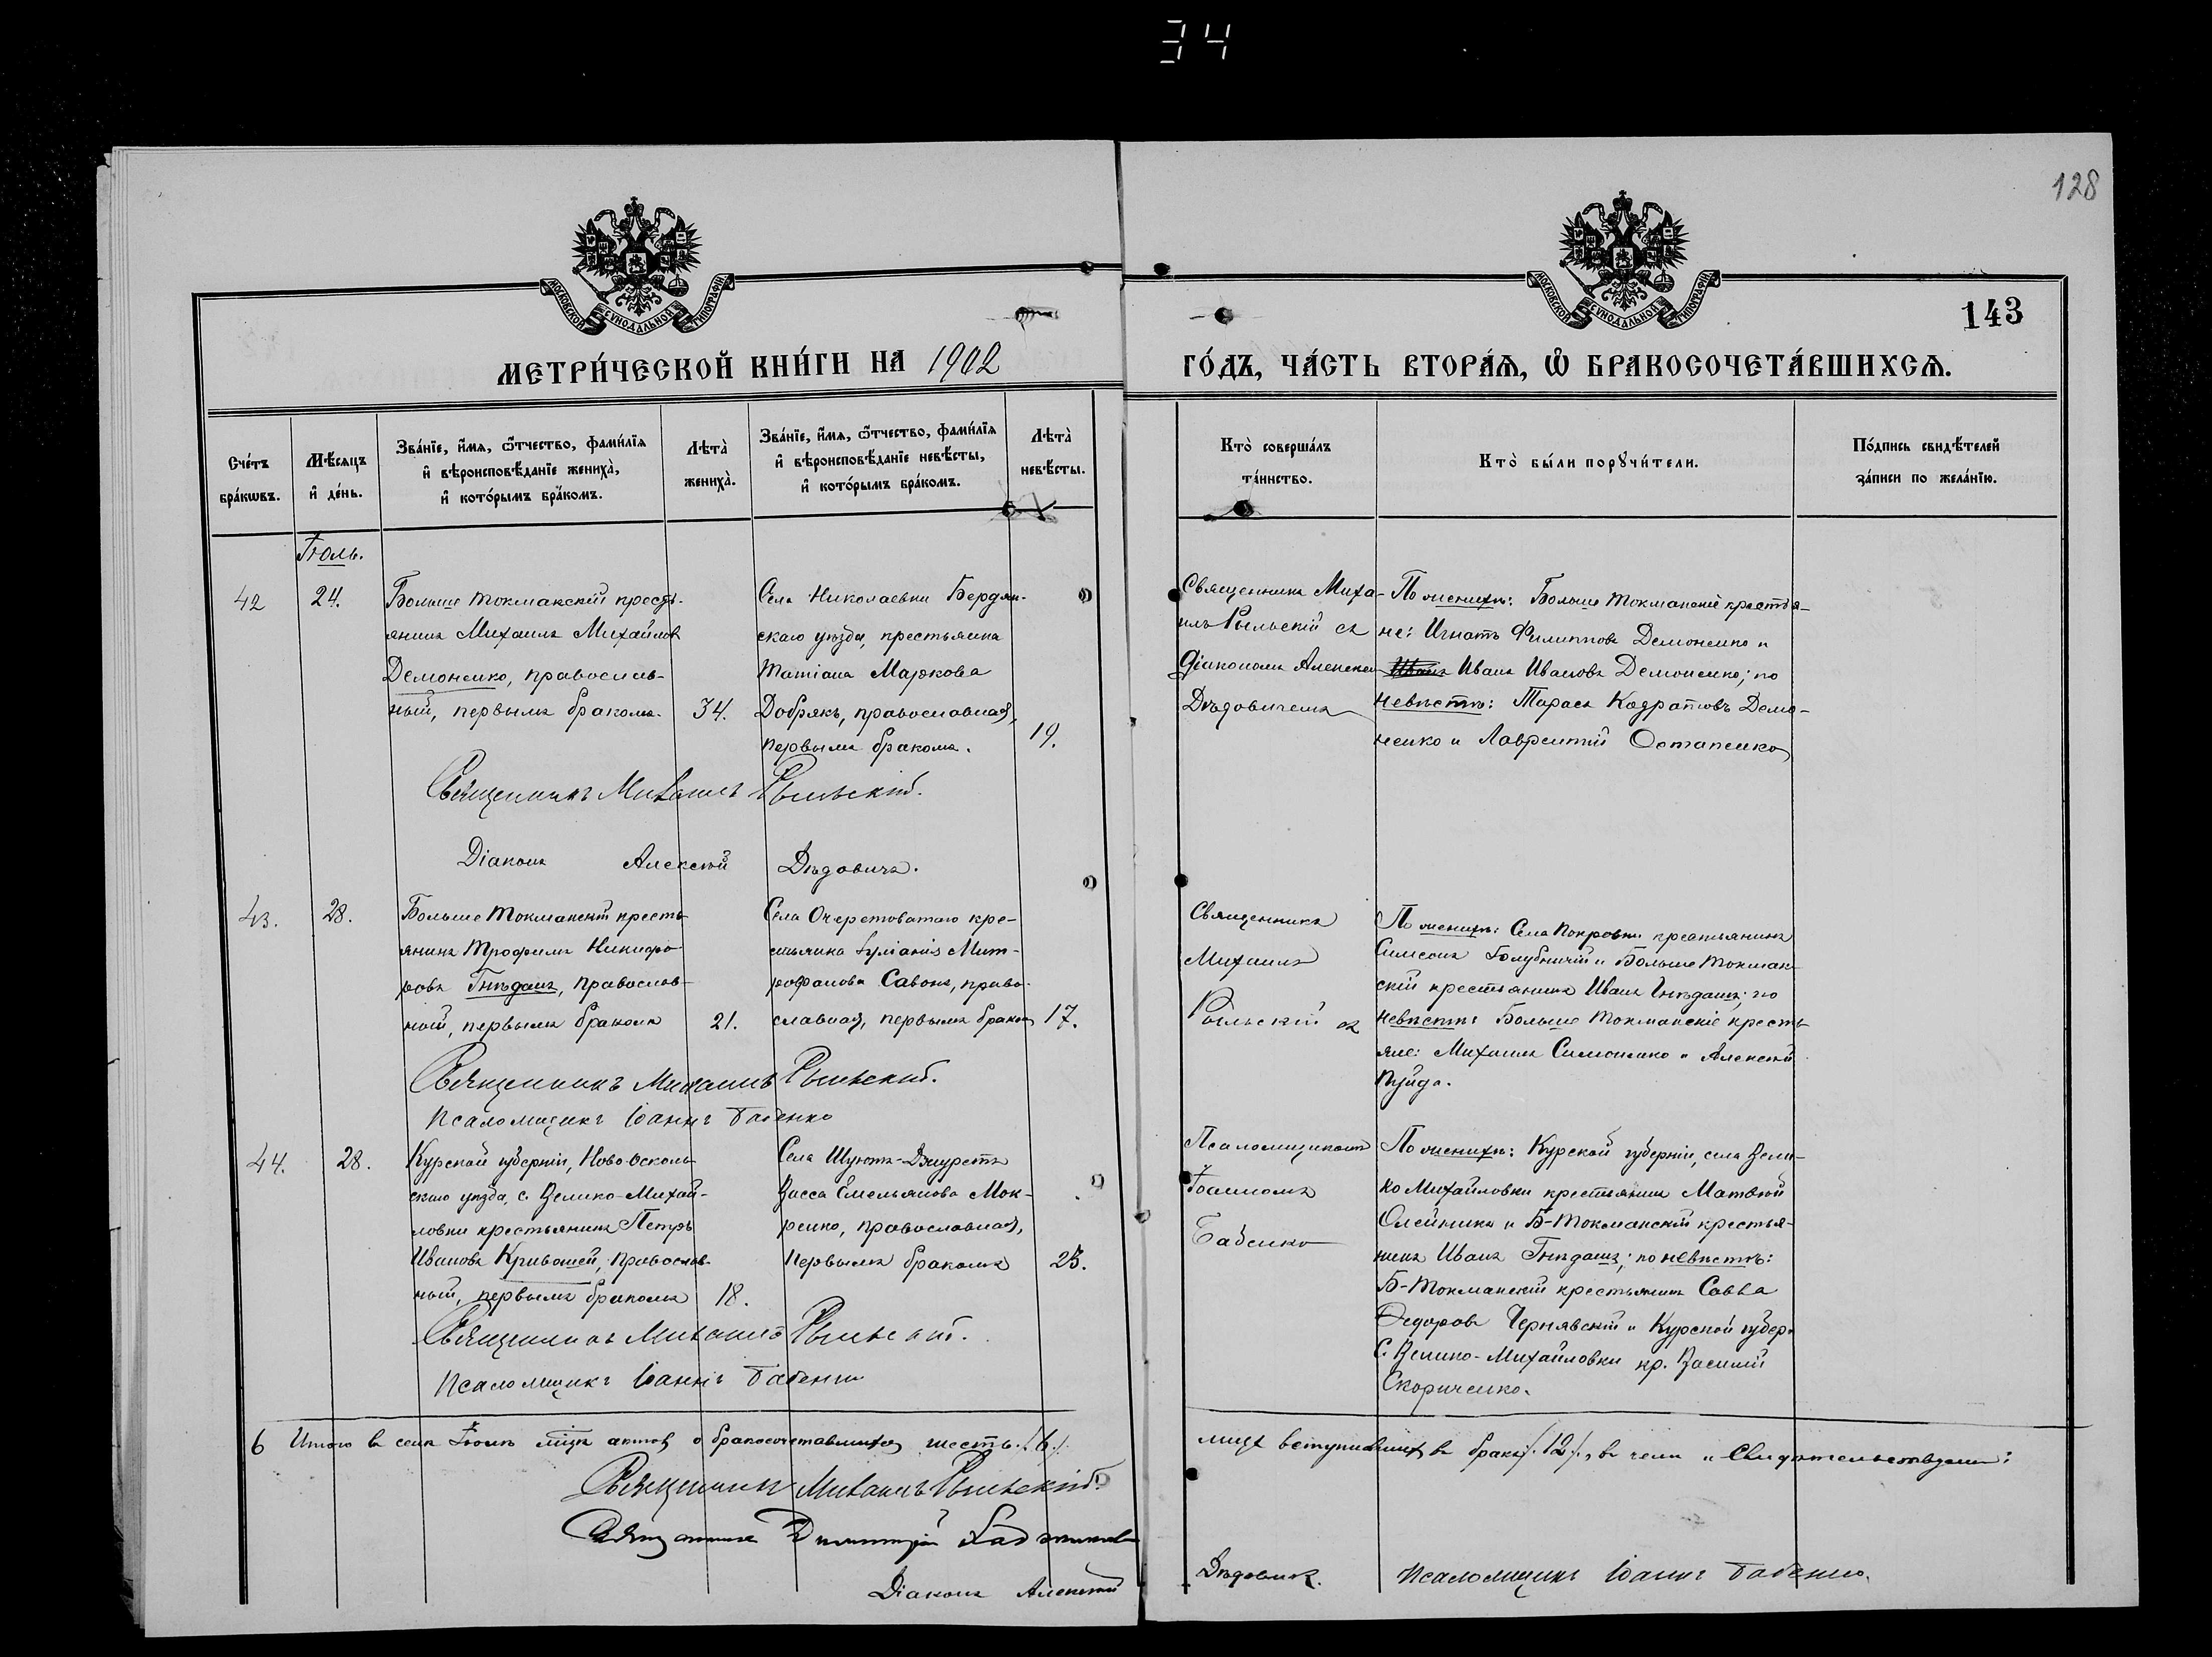 34
128
143
МОСКОВСКОЙ СѴНОДАЛЬНОЙ ТИПОГРАФІИ.
МОСКОВСКОЙ СѴНОДАЛЬНОЙ ТИПОГРАФІИ.
МЕТРИ́ЧЕСКОЙ КНИ́ГИ НА 1902
ГО́ДЪ, ЧА́СТЬ ВТОРА́Ѧ, Ѽ БРАКОСОЧЕТА́ВШИХСѦ.
Сче́тъ бра́кѡвъ.
Мѣ́сяцъ и҆ де́нь.
Зва́нїе, и҆́мѧ, ѻ҆́тчество, фами́лїѧ
и҆ вѣроисповѣ́данїе жениха̀,
и҆ кото́рымъ бра́комъ.
Лѣта̀ жениха̀.
Зва́нїе, и҆́мѧ, ѻ҆́тчество, фами́лїѧ
и҆ вѣроисповѣ́данїе невѣ́сты,
и҆ кото́рымъ бра́комъ.
Лѣта̀ невѣ́сты.
Кто̀ соверша́лъ
та́инство.
Кто̀ бы́ли порꙋчи́тели.
По́дпись свидѣ́телей
за́писи по жела́нїю.
Іюль.
42
24.
Больше Токмакскій кресть-
янинъ Михаилъ Михайловъ
Демоненко, православ-
ный, первымъ бракомъ.
34.
Села Николаевки Бердян-
скаго уѣзда, крестьянка
Татіана Маркова
Добрякъ, православная,
первымъ бракомъ.
19.
Священникъ Миха-
илъ Рыльскій съ
Діакономъ Алексѣемъ
Дѣдовичемъ
По женихѣ: Больше Токмакскіе крестья-
не: Игнатъ Филипповъ Демоненко и
Иванъ Ивановъ Демоненко; по
невѣстѣ: Тарасъ Кадратовъ Демо-
ненко и Лаврентій Остапенко
Священникъ Михаилъ Рыльскій.
Діаконъ Алексѣй Дѣдовичъ.
43.
28.
Больше Токмакскій кресть-
янинъ Трофимъ Никифо-
ровъ Гнѣдашъ, православ-
ный, первымъ бракомъ
21.
Села Очеретоватаго кре-
стьянка Іуліанія Мит-
рофанова Савонъ, право-
славная, первымъ бракомъ
17.
Священникъ
Михаилъ
Рыльскій съ
По женихѣ: Села Покровки крестьянинъ
Симеонъ Голубничій и Больше Токмак-
скій крестьянинъ Иванъ Гнѣдашъ; по
невѣстѣ: Больше Токмакскіе кресть-
яне: Михаилъ Симоненко и Алексѣй
Пуйда.
Священникъ Михаилъ Рыльскій.
Псаломщикъ Іоаннъ Бабенко
44.
28.
Курской губерніи, Ново-Осколь-
скаго уѣзда, с. Велико-Михай-
ловки крестьянинъ Петръ
Ивановъ Кривошей, православ-
ный, первымъ бракомъ
18.
Села Шуютъ-Джуретъ
Васса Емельянова Мок-
ренко, православная,
первымъ бракомъ
23.
Псаломщикомъ
Іоанномъ
Бабенко
По женихѣ: Курской губерніи, села Вели-
ко Михайловки крестьянинъ Матвѣй
Олейникъ и Б-Токмакскій крестья-
нинъ Иванъ Гнѣдашъ; по невѣстѣ:
Б-Токмакскій крестьянинъ Савва
Федоровъ Чернявскій и Курской губер.
с. Велико-Михайловки кр. Василій
Скориченко.
Священникъ Михаилъ Рыльскій.
Псаломщикъ Іоаннъ Бабенко
6 Итого въ семъ Іюлѣ мцѣ актовъ о бракосочетавшихся шесть /6/.
лицъ вступившихъ въ бракъ /12/, въ чемъ и свидѣтельствуемъ:
Священникъ Михаилъ Рыльскій.
Священникъ Димитрій
Діаконъ Алексѣй Дѣдовичъ.
Псаломщикъ Іоаннъ Бабенко.